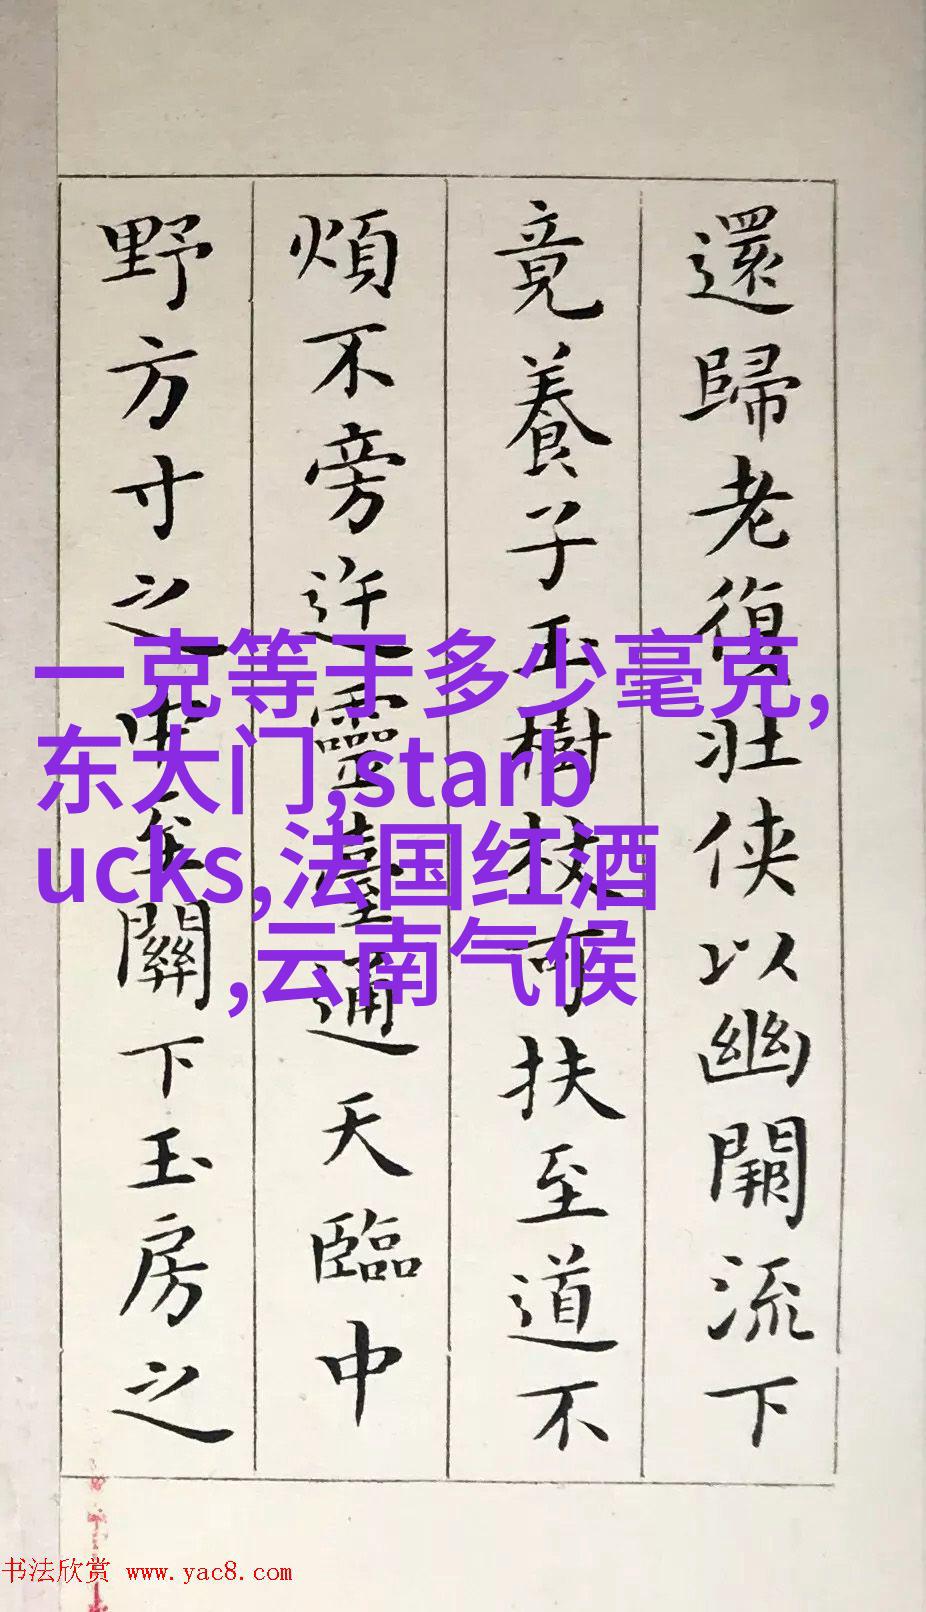 還歸老復壯侠以幽闕流下
竟養子玉樹杖可扶至道不
煩不旁迕靈臺通天臨中
野方寸之中至關下玉房之
一克等于多少毫克,
东大门,starb
ucks,法国红酒
,云南气候
书法欣赏 www.yac8.com